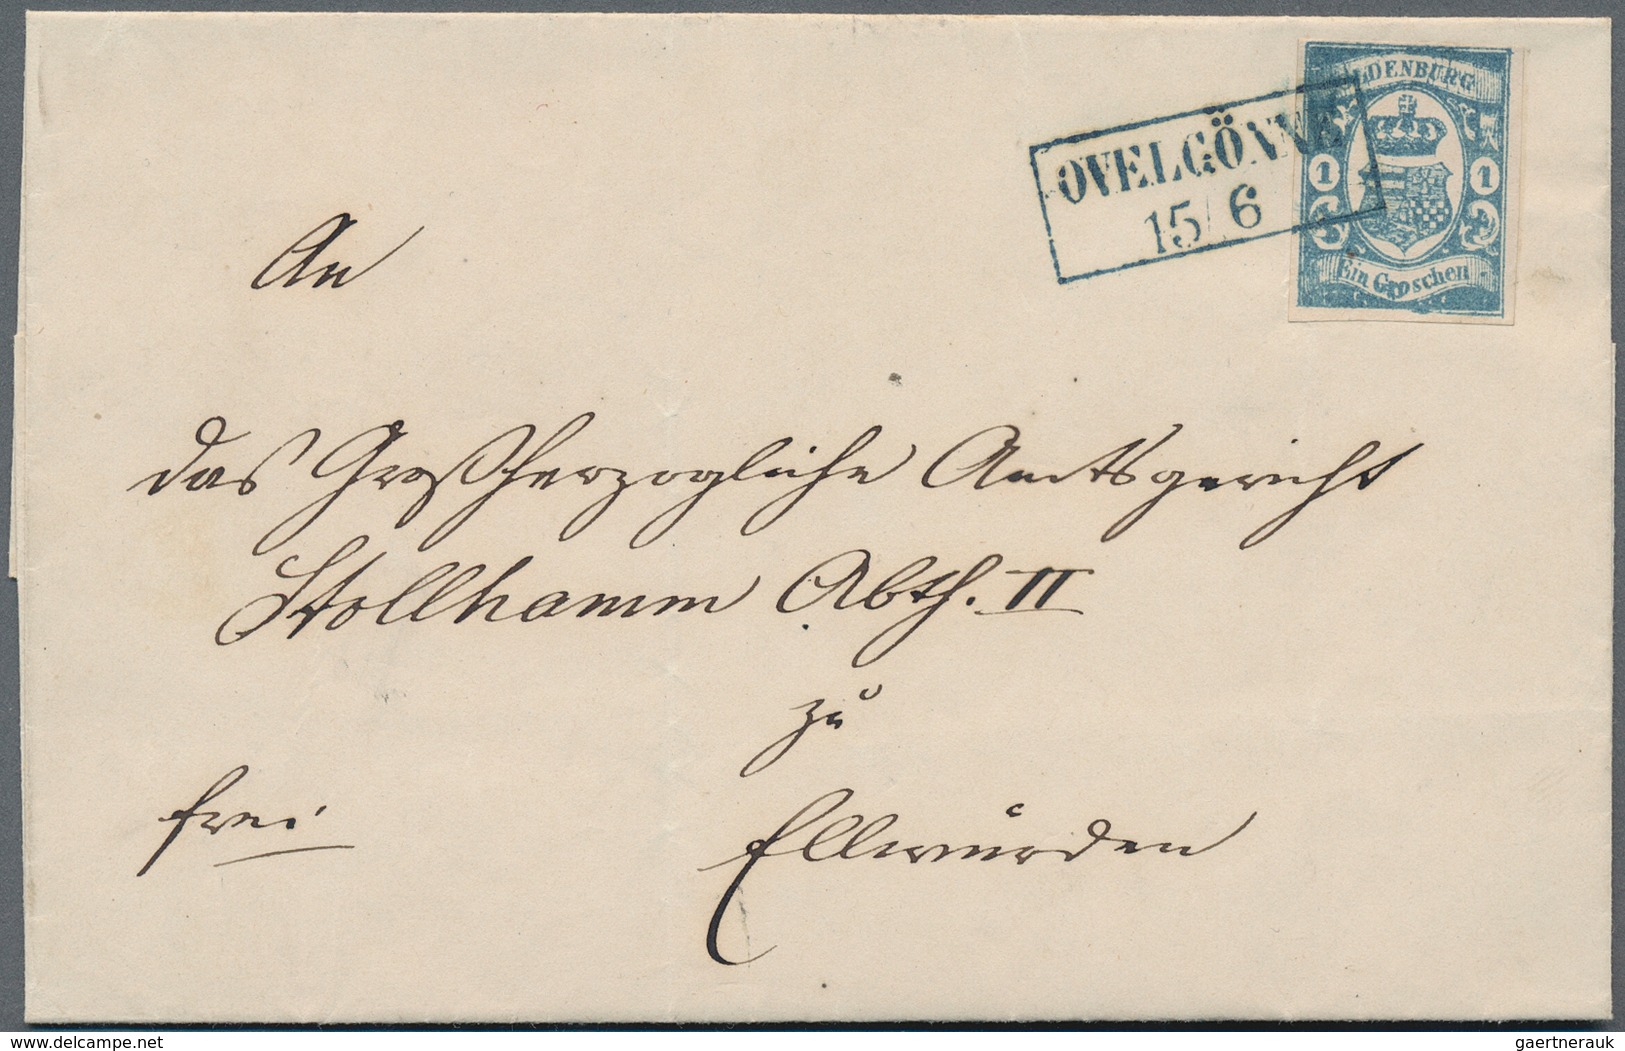 OLDENBURG
1 1
Ein Groschen
OVELGÖNNE
15/6
An
das Großherzogliche Amtsgericht
Stollhamm Abth. II
zu
frei
Ellwürden
www.delcampe.net
gaertnerauk